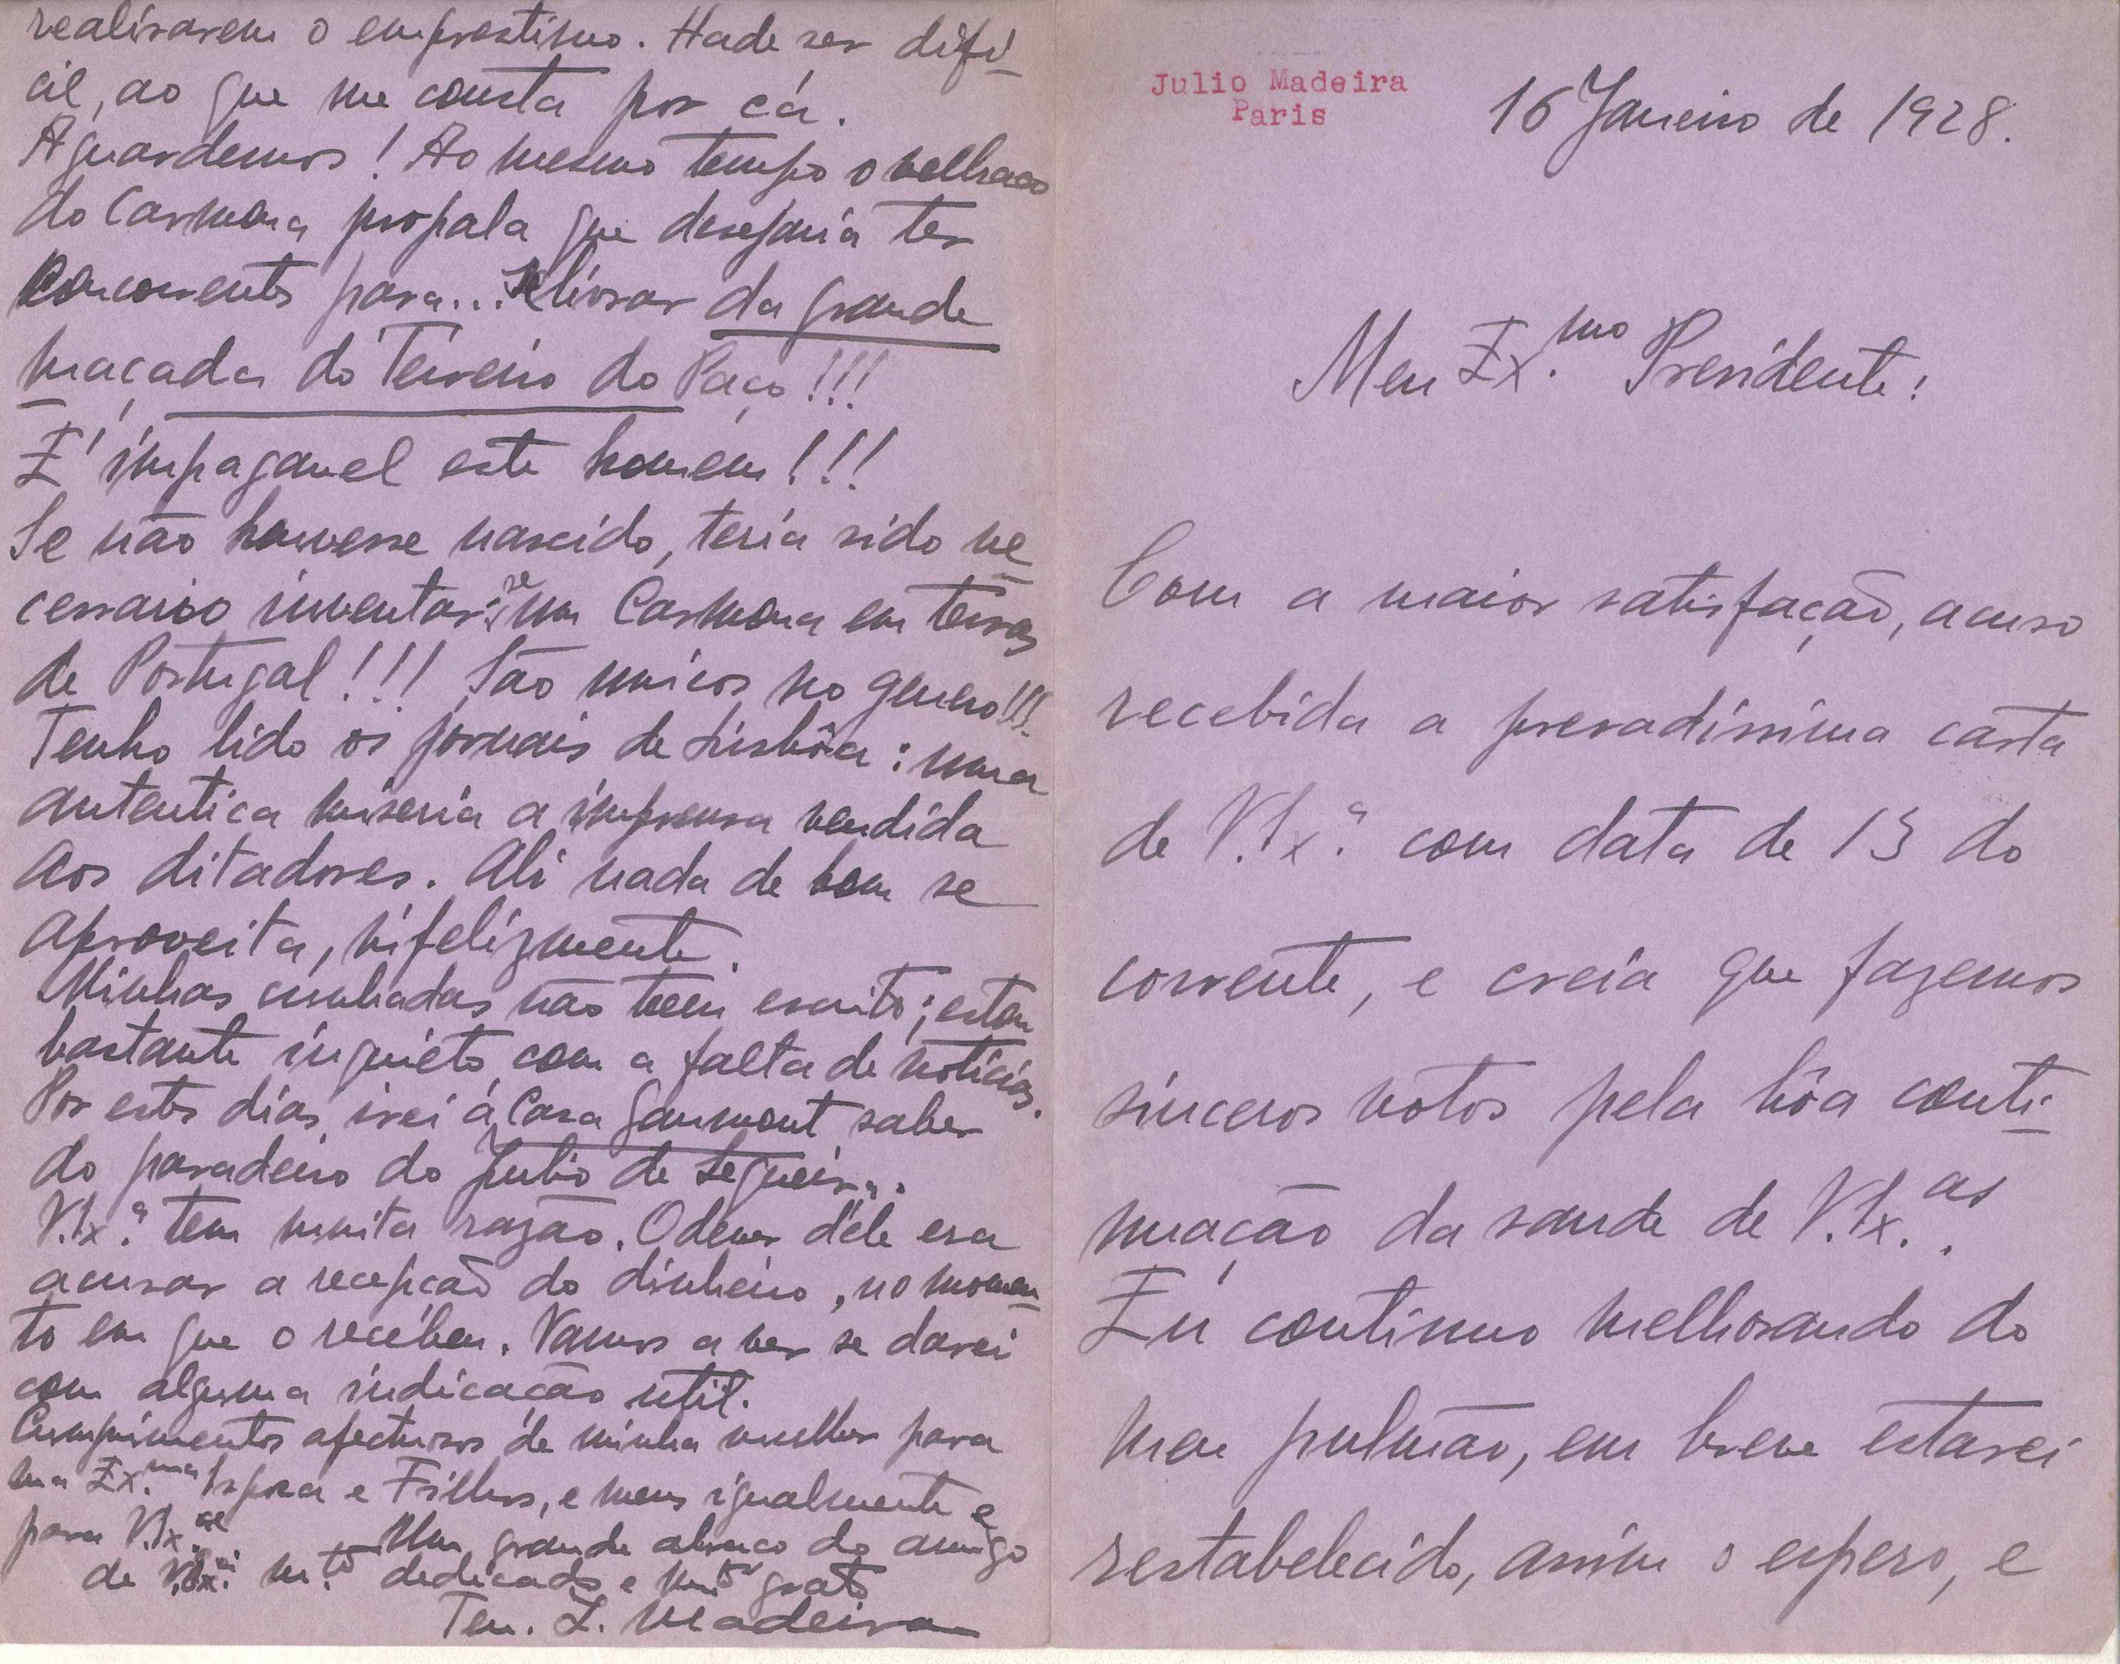 Julio Madeira
Paris
16 Janeiro de 1928.
Meu Ex.mo Presidente!
Com a maior satisfação, acuso
recebida a presadissima carta
de V. Ex.a com data de 13 do
corrente, e creia que fazemos
sinceros votos pela bôa conti-
nuação da saude de V. Ex.as.
Eu continuo melhorando do
meu pulmão, em breve estarei
restabelecido, assim o espero, e
realisarem o emprestimo. Hade ser difi-
cil, ao que me consta por cá.
Aguardemos! Ao mesmo tempo o velhaco
do Carmona propala que desejaria ter
concorrentes para... se livrar da grande
maçada do Terreiro do Paço!!!
E' impagavel este homem!!!
Se não houvesse nascido, teria sido ne-
cessario inventar-se um Carmona em terras
de Portugal!!! São unicos no genero!!!
Tenho lido os jornais de Lisbôa: uma
autentica miseria a imprensa vendida
aos ditadores. Ali nada de bom se
aproveita, infelizmente.
Minhas cunhadas não teem escrito; estou
bastante inquieto com a falta de noticias.
Por estes dias irei á Casa Gaumont saber
do paradeiro do Julio de Sequeira.
V. Ex.a tem muita razão. O dever dêle era
acusar a recepção do dinheiro, no momen-
to em que o recebeu. Vamos a ver se darei
com alguma indicação util.
Cumprimentos afectuosos de minha mulher para
sua Ex.ma Esposa e Filhos, e meus igualmente e
para V. Ex.as. Um grande abraço do amigo
de V. Ex.a m.to dedicado e m.to grato
Ten. J. Madeira